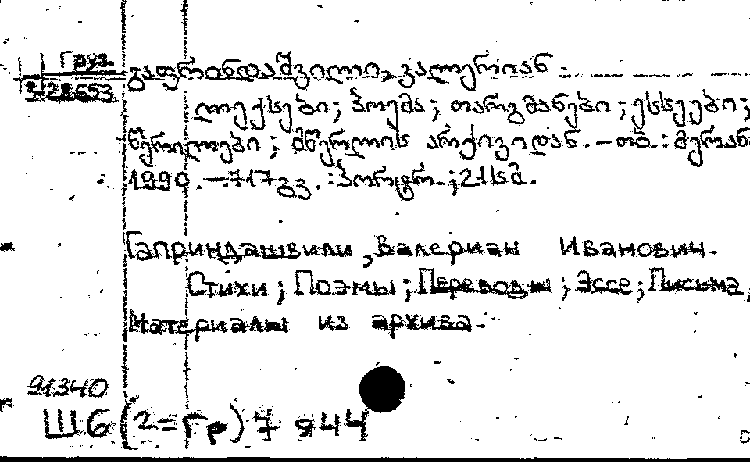 Груз.
გაფრინდაშვილი, ვალერიან.
2-28653
ლექსები; პოემა; თარგმანები; ესსეები;
წერილები; მწერლის არქივიდან. – თბ.: მერანი
1990. – 717გვ. : პორტრ. ; 21სმ.
Гаприндашвили, Валериан Иванович.
Стихи; Поэмы; Переводы; Эссе; Письма;
Материалы из архива.
91340
Ш6(2=Гр)7 я44